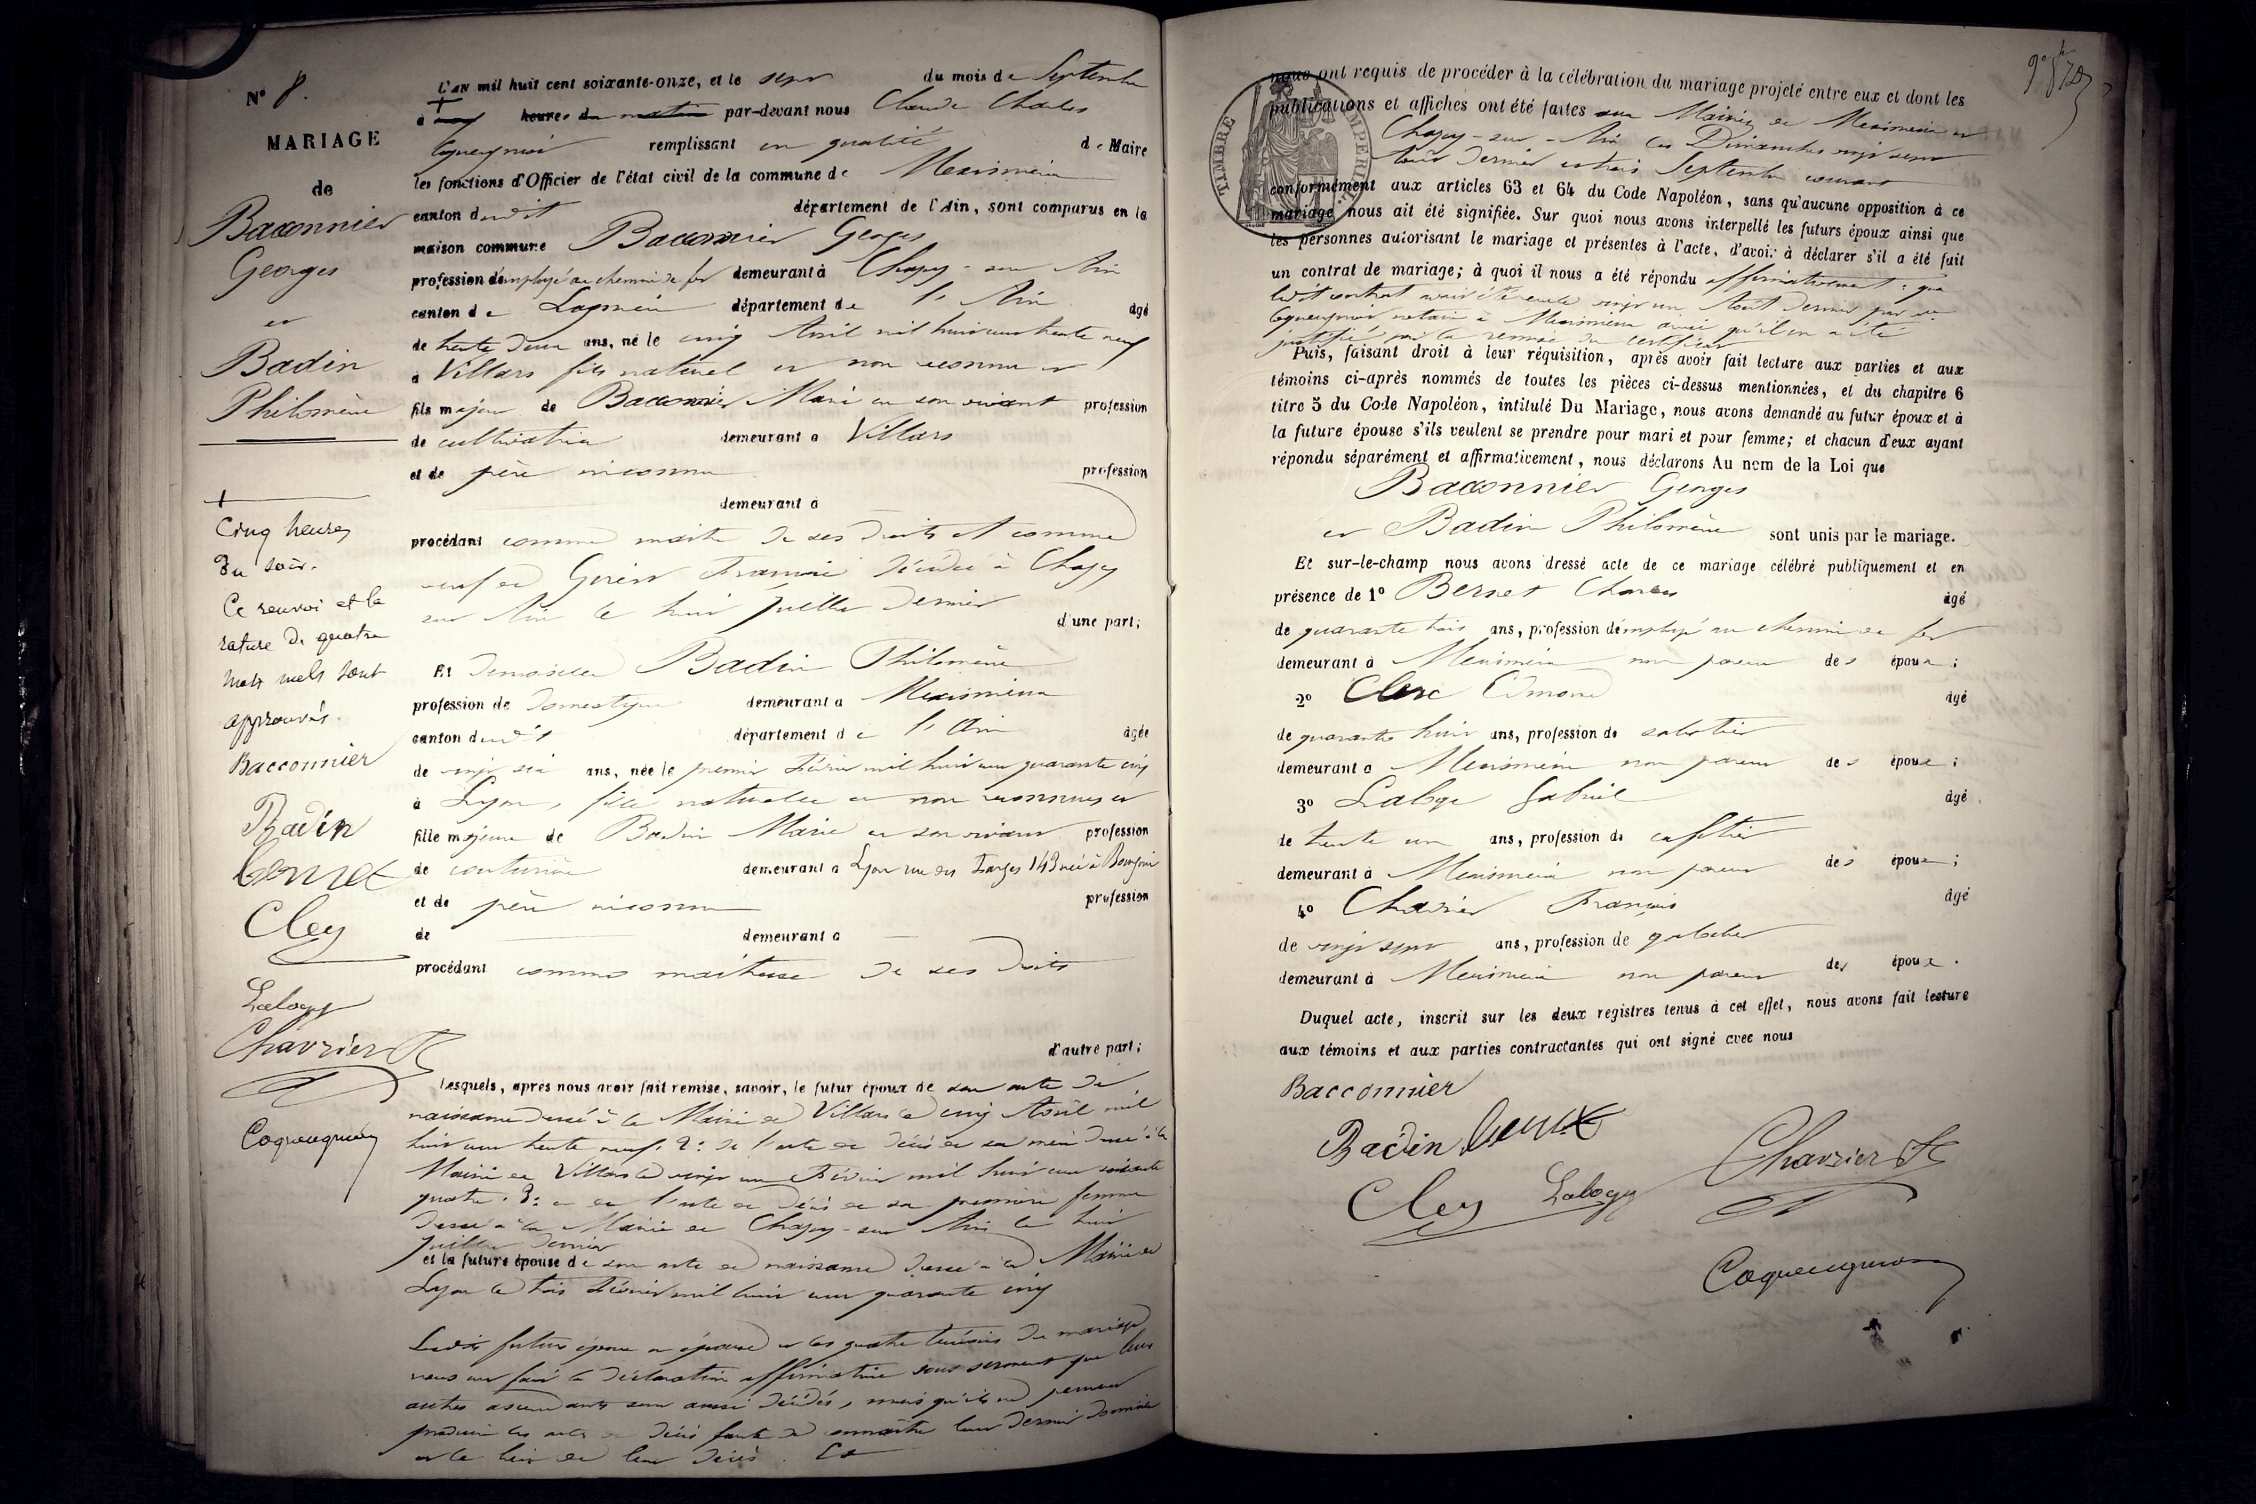 N° 8.
MARIAGE
de
Bacconnier
Georges
et
Badin
Philomène
Cinq heures
du soir.
Ce renvoi et la
rature de quatre
mots nuls sont
approuvés.
Bacconnier
Badin
Bernet
Clerc
Laloge
Chavrier
Coquengniot
L'an mil huit cent soixante-onze, et le sept du mois de Septembre
à heures du matin par-devant nous Claude Charles
remplissant en qualité de Maire
les fonctions d'Officier de l'état civil de la commune de Meximieux
canton dudit département de l'Ain, sont comparus en la
maison commune Bacconnier Georges
profession d'employé au chemin de fer demeurant à Chazey-sur-Ain
canton de Lagnieu département de l'Ain âgé
de trente deux ans, né le cinq Avril mil huit cent trente neuf
à Villars fils naturel et non reconnu et
fils majeur de Bacconnier Marie en son vivant profession
de cultivatrice demeurant à Villars
et de père inconnu profession
demeurant à
procédant comme maître de ses droits et comme
veuf de Françoise décédée à Chazey
sur Ain le huit Juillet dernier
d'une part;
Et demoiselle Badin Philomène
profession de domestique demeurant à Meximieux
canton dudit département de l'Ain âgée
de vingt six ans, née le premier Février mil huit cent quarante cinq
à Lyon, fille naturelle et non reconnue et
fille majeure de Badin Marie en son vivant profession
de couturière demeurant à Lyon rue des Farges 143 née à Bourgoin
et de père inconnu profession
de demeurant à
procédant comme maîtresse de ses droits
d'autre part;
Lesquels, après nous avoir fait remise, savoir, le futur époux de son acte de
naissance dressé à la Mairie de Villars le cinq Avril mil
huit cent trente neuf. 2° de l'acte de décès de sa mère dressé à la
Mairie de Villars le vingt un Février mil huit cent soixante
quatre. 3° et de l'acte de décès de sa première femme
dressé à la Mairie de Chazey-sur-Ain le huit
Juillet dernier
et la future épouse de son acte de naissance dressé à la Mairie de
Lyon le trois Février mil huit cent quarante cinq
Lesdits futurs époux et épouse et les quatre témoins du mariage
nous ont fait la déclaration affirmative sous serment que leurs
autres ascendants sont aussi décédés, mais qu'ils ne peuvent
produire les actes de décès faute de connaître leur dernier domicile
et le lieu de leur décès. Et
nous ont requis de procéder à la célébration du mariage projeté entre eux et dont les
publications et affiches ont été faites aux Mairies de Meximieux et
Chazey-sur-Ain les Dimanches vingt sept
Août dernier et trois Septembre courant
conformément aux articles 63 et 64 du Code Napoléon, sans qu'aucune opposition à ce
mariage nous ait été signifiée. Sur quoi nous avons interpellé les futurs époux ainsi que
les personnes autorisant le mariage et présentes à l'acte, d'avoir à déclarer s'il a été fait
un contrat de mariage; à quoi il nous a été répondu affirmativement; que
ledit contrat avait été reçu le vingt un Août dernier par Me
notaire à Meximieux ainsi qu'il en a été
justifié par la remise du certificat
Puis, faisant droit à leur réquisition, après avoir fait lecture aux parties et aux
témoins ci-après nommés de toutes les pièces ci-dessus mentionnées, et du chapitre 6
titre 5 du Code Napoléon, intitulé Du Mariage, nous avons demandé au futur époux et à
la future épouse s'ils veulent se prendre pour mari et pour femme; et chacun d'eux ayant
répondu séparément et affirmativement, nous déclarons Au nom de la Loi que
Bacconnier Georges
et Badin Philomène sont unis par le mariage.
Et sur-le-champ nous avons dressé acte de ce mariage célébré publiquement et en
présence de 1° Bernet Charles âgé
de quarante trois ans, profession d'employé au chemin de fer
demeurant à Meximieux non parent des époux;
2° Clerc Edmond âgé
de quarante huit ans, profession de sabotier
demeurant à Meximieux non parent des époux;
3° Laloge Gabriel âgé
de trente un ans, profession de cafetier
demeurant à Meximieux non parent des époux;
4° Chavrier François âgé
de vingt sept ans, profession de galocher
demeurant à Meximieux non parent des époux.
Duquel acte, inscrit sur les deux registres tenus à cet effet, nous avons fait lecture
aux témoins et aux parties contractantes qui ont signé avec nous
Bacconnier
Badin Bernet Chavrier
Clerc Laloge
Coquengniot
TIMBRE IMPERIAL